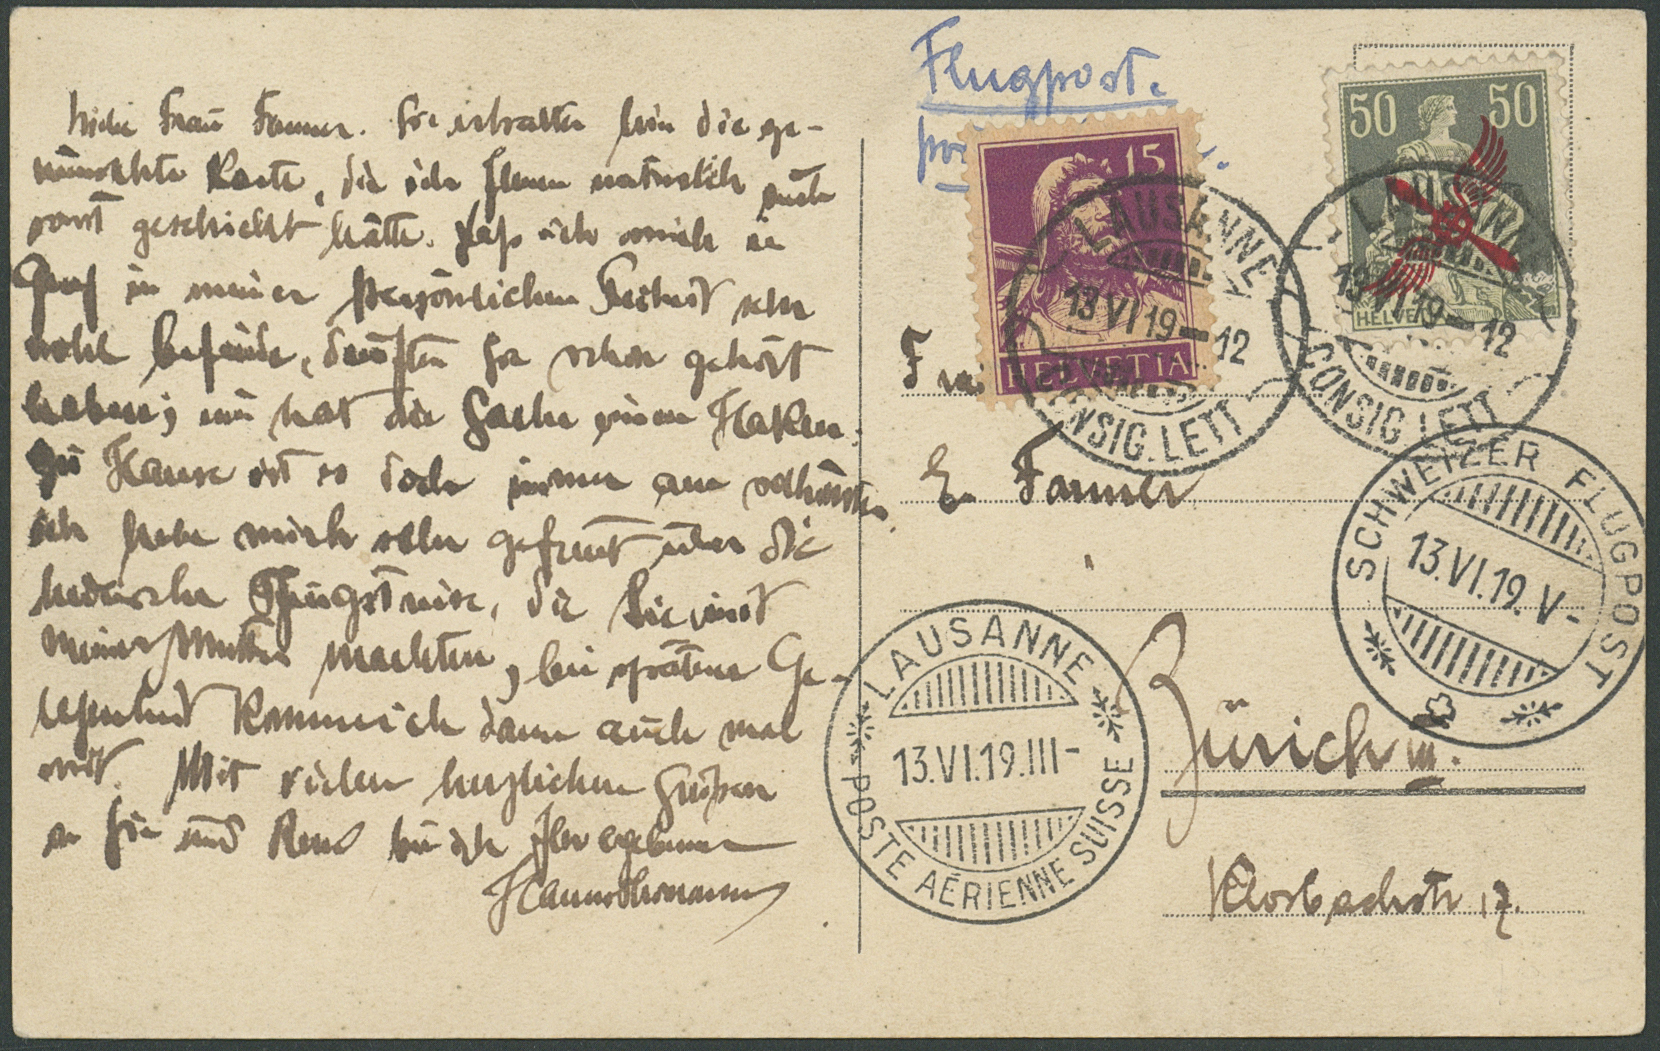 Liebe Frau Fanner. Sie erhalten hier die ge-
wünschte Karte, die ich Ihnen natürlich auch
sonst geschickt hätte. Daß ich mich in
Genf in meiner persönlichen Freiheit sehr
wohl befinde, dürften Sie schon gehört
haben; nur hat die Sache einen Haken:
zu Hause ist es doch immer am schönsten.
Ich habe mich sehr gefreut über die
Pfingstreise, die Sie mit
meiner Mutter machten, bei späterer Ge-
legenheit komme ich dann auch mal
mit. Mit vielen herzlichen Grüßen
an Sie und René bin ich Ihr ergebener
Flugpost.
15
HELVETIA
50 50
HELVETIA
LAUSANNE
13 VI 19-12
CONSIG. LETT
LAUSANNE
13 VI 19-12
CONSIG. LETT
Frau
E. Fanner
SCHWEIZER FLUGPOST
13.VI.19.V-
LAUSANNE
13.VI.19.III-
POSTE AÉRIENNE SUISSE
Zürich III.
Klosbachstr 17.